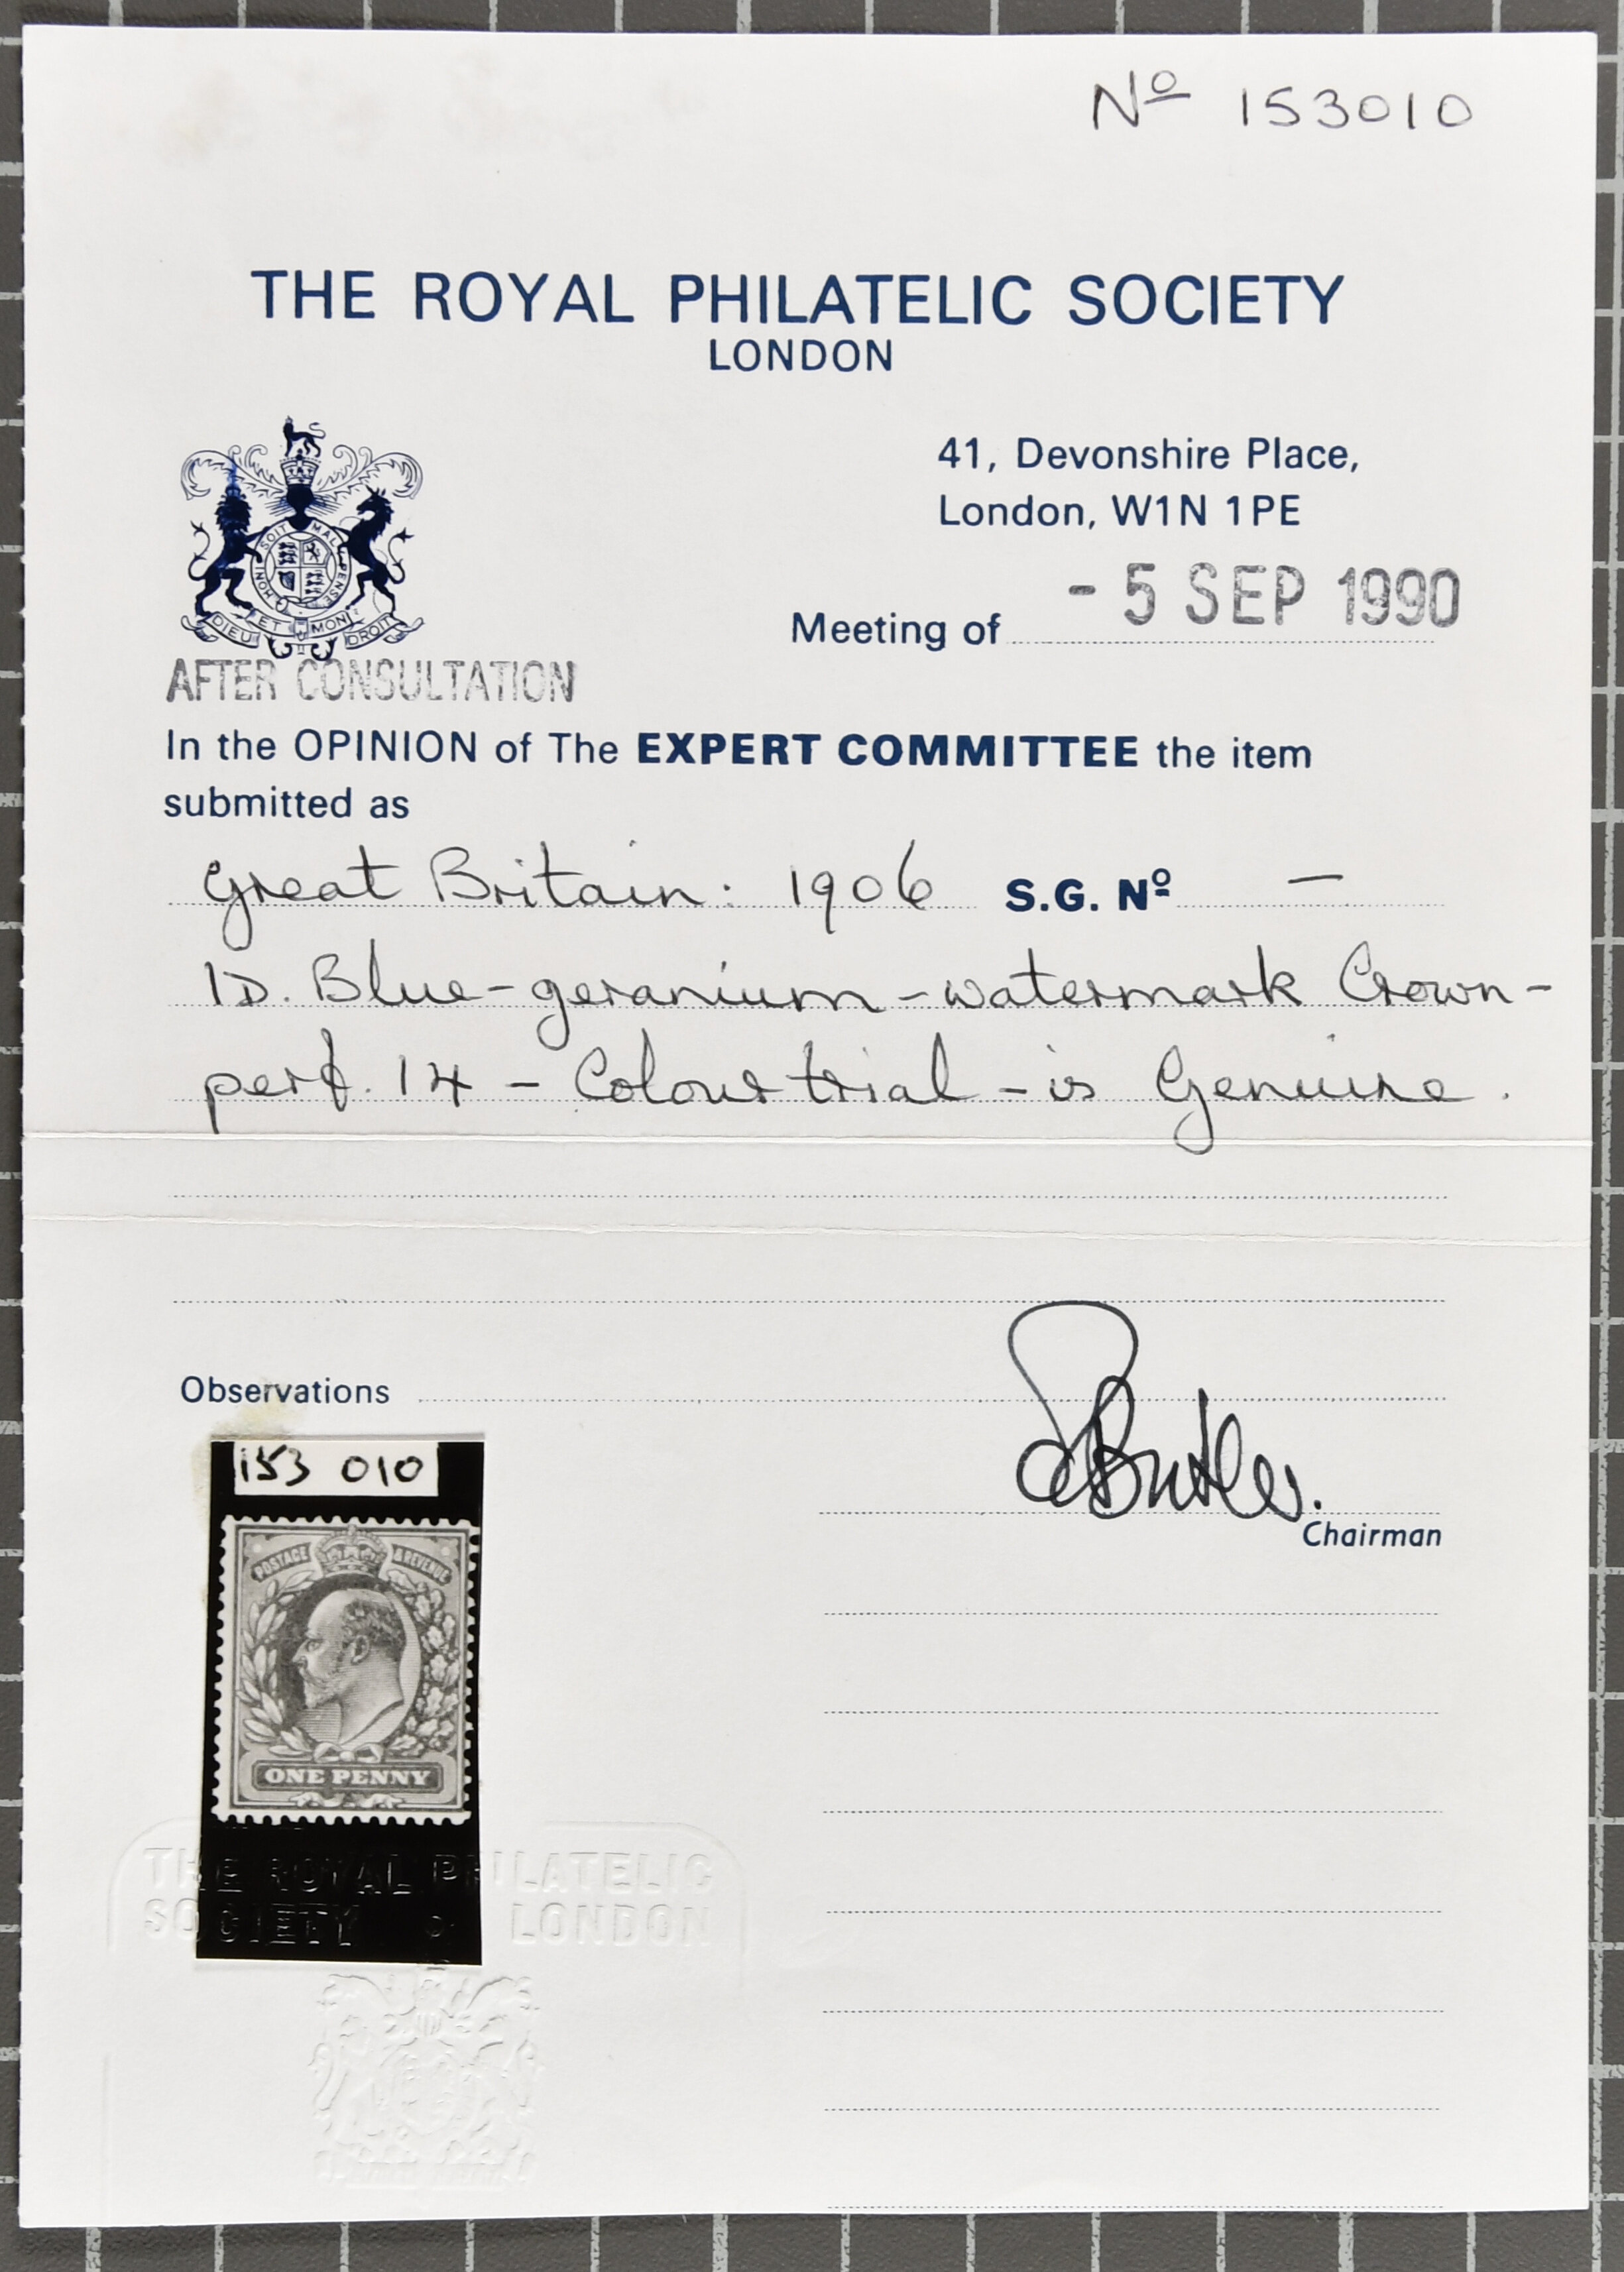 Nº 153010
THE ROYAL PHILATELIC SOCIETY
LONDON
41, Devonshire Place,
London, W1N 1PE
HONI SOIT MAL PENSE
DIEU ET MON DROIT
- 5 SEP 1990
Meeting of
AFTER CONSULTATION
In the OPINION of The EXPERT COMMITTEE the item
submitted as
Great Britain: 1906 S.G. Nº —
1D. Blue-geranium - watermark Crown -
perf. 14 - Colour trial - is Genuine.
Observations
Butler.
Chairman
153 010
POSTAGE & REVENUE
ONE PENNY
THE ROYAL PHILATELIC
SOCIETY LONDON